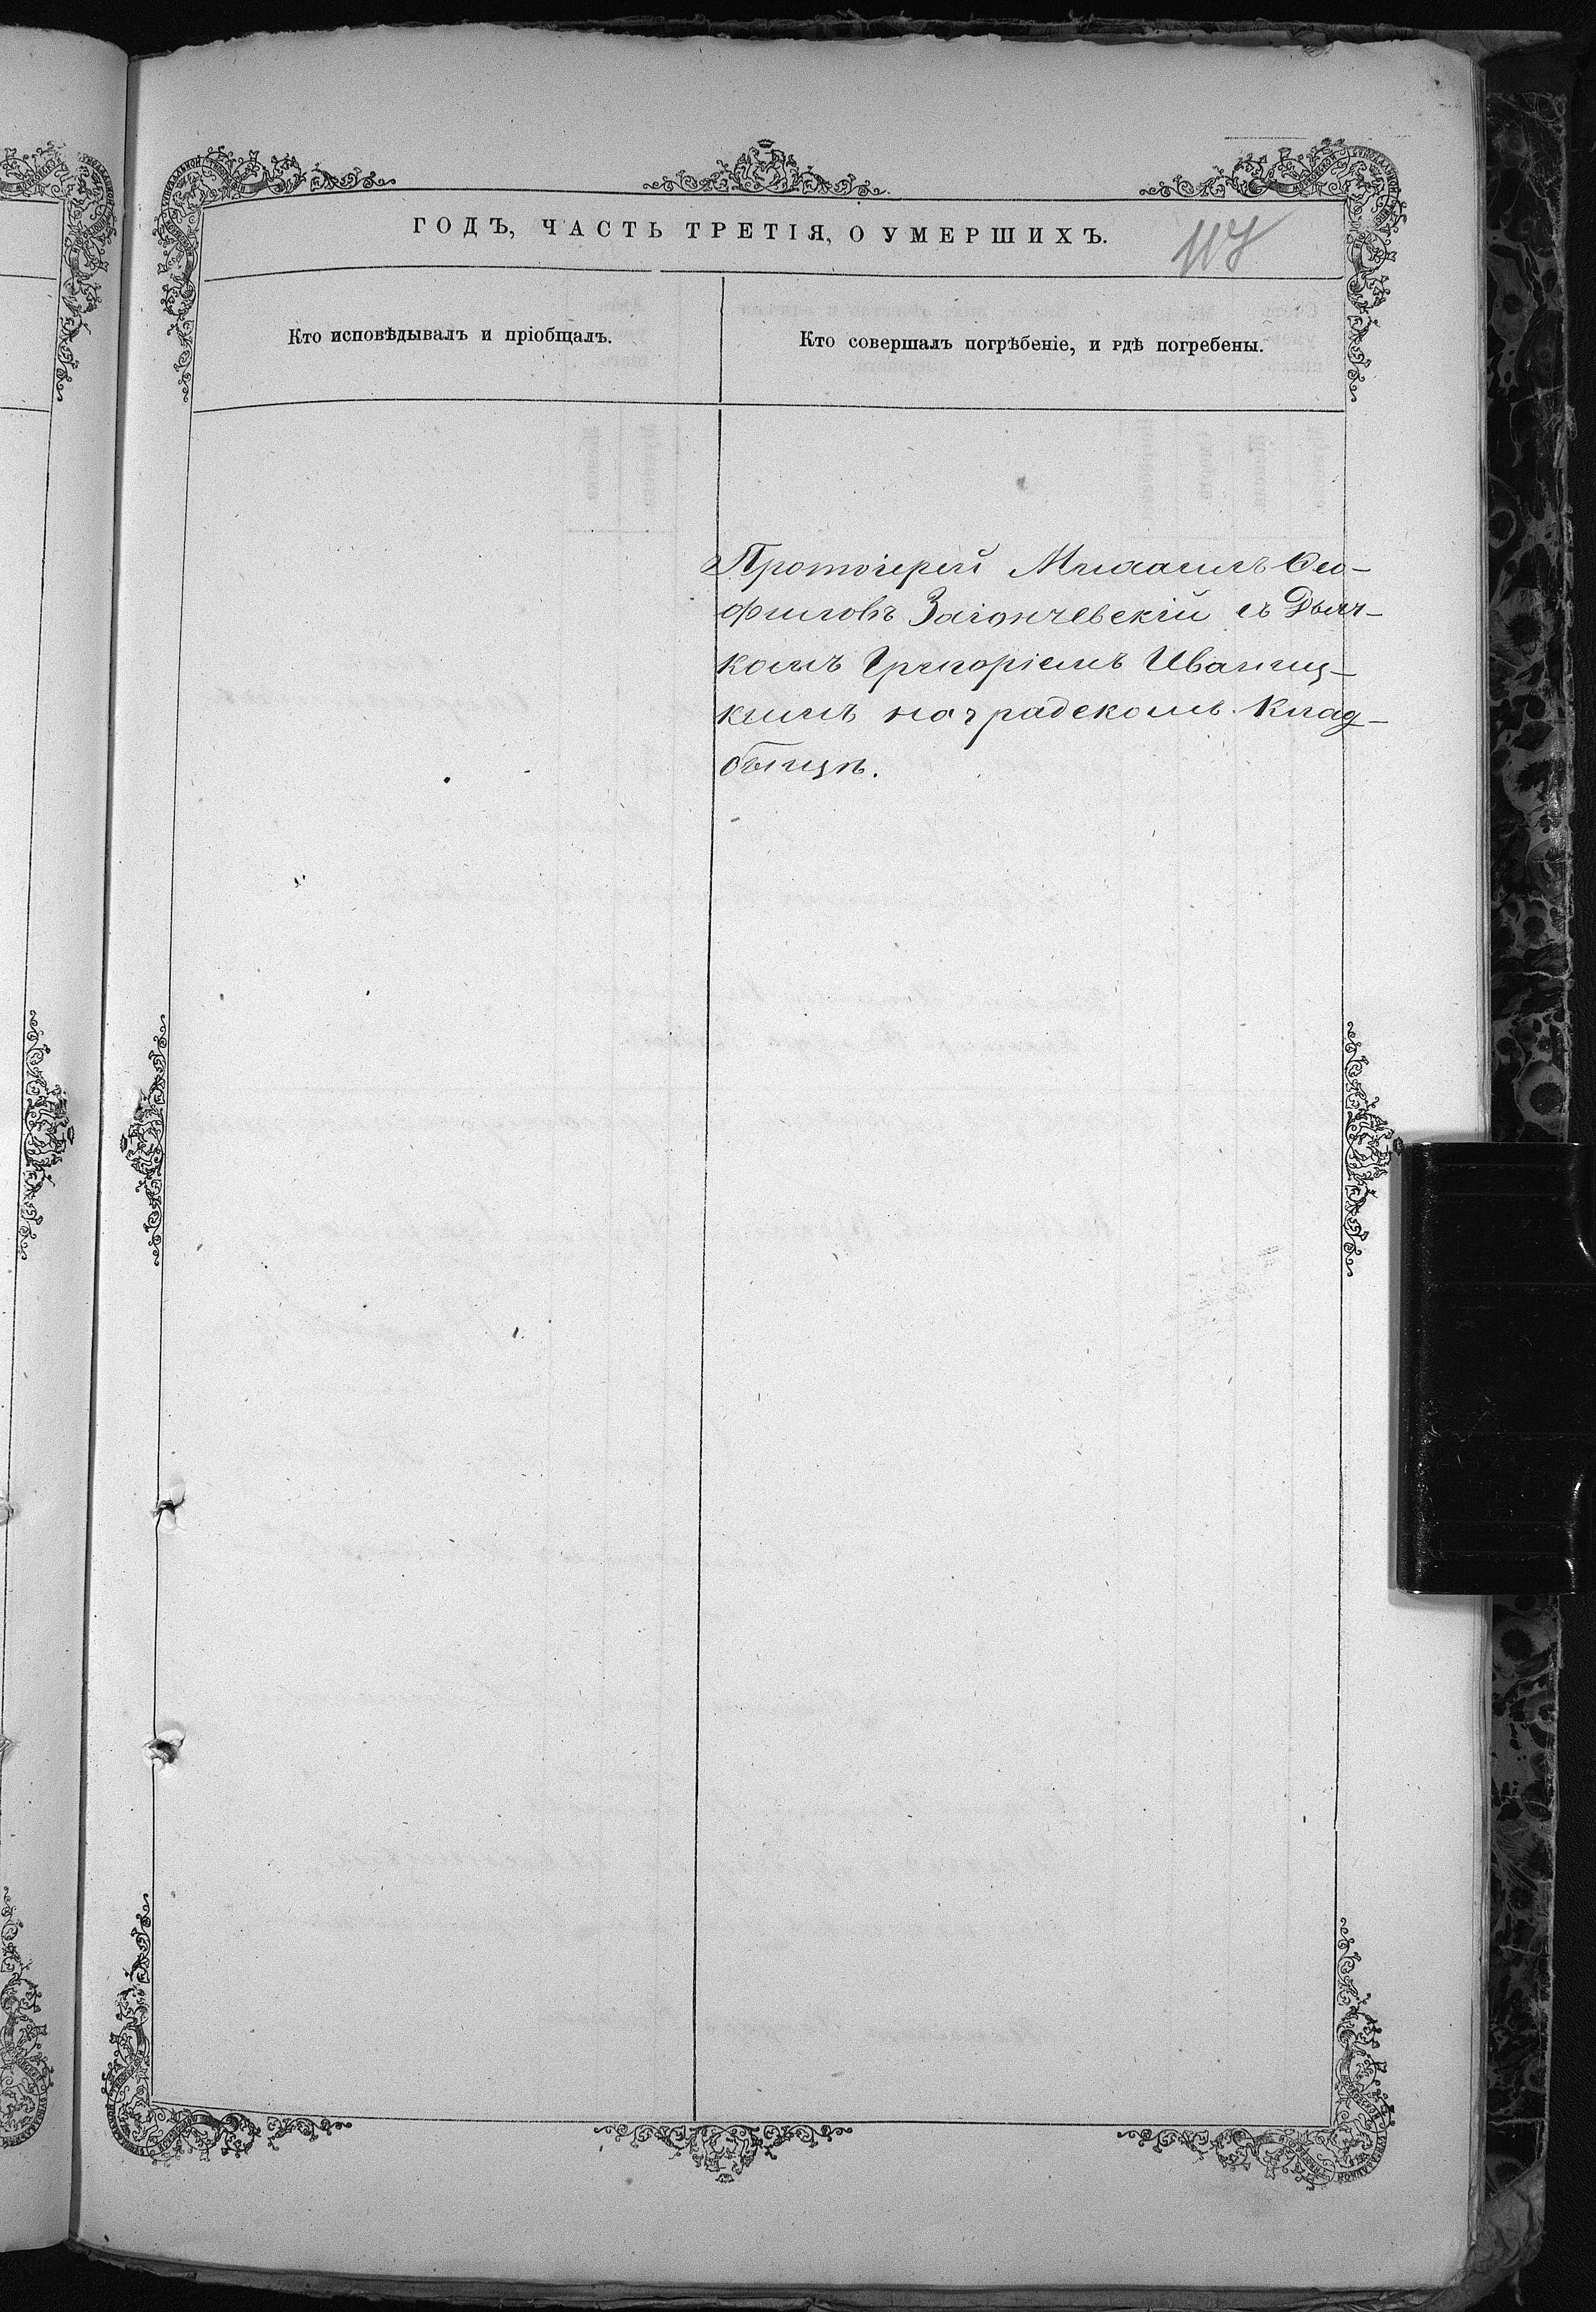 ГОДЪ, ЧАСТЬ ТРЕТІЯ, О УМЕРШИХЪ.
117
Кто исповѣдывалъ и пріобщалъ.
Кто совершалъ погрѣбеніе, и гдѣ погребены.
Протоіерей Михаилъ Ѳео-
филовъ Загончевскій съ Дьяч-
комъ Григоріемъ Иваниц-
кимъ на градскомъ Клад-
бищѣ.